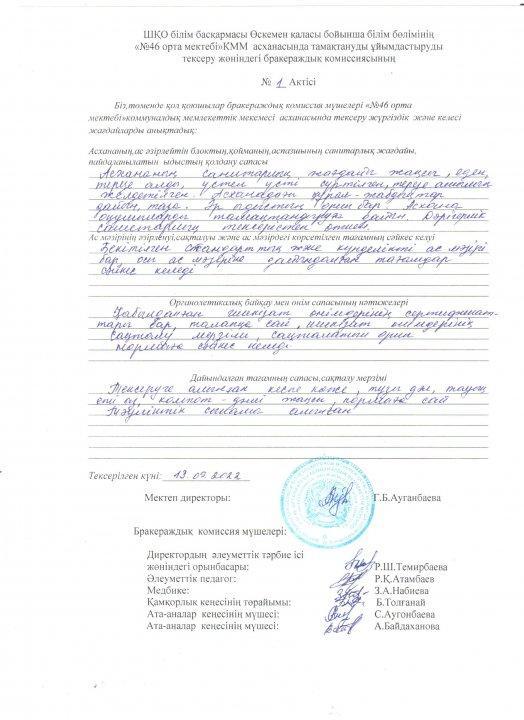 ШҚО білім басқармасы Өскемен қаласы бойынша білім бөлімінің
«№46 орта мектебі»КММ асханасында тамақтануды ұйымдастыруды
тексеру жөніндегі бракераждық комиссиясының
№ 1 Актісі
Біз,төменде қол қоюшылар бракераждық комиссия мүшелері «№46 орта
мектебі»коммуналдық мемлекеттік мекемесі асханасында тексеру жүргіздік және келесі
жағдайларды анықтадық:
Асхананың,ас әзірлейтін блоктың,қойманың,аспазшының санитарлық жағдайы,
пайдаланылатын ыдыстың қолдану сапасы
Асхананың санитарлық жағдайы жақсы, еден,
терезе алды, үстел үсті сүртілген, терезе
желдетілген. Асханадағы құрал-жабдықтар
дайын, таза. Әр
оқушыларды тамақтандыруға дайын. Дәрігерлік
Ас мәзірінің әзірленуі,сақталуы және ас мәзірдегі көрсетілген тағамның сәйкес келуі
Бекітілген стандарттық және күнделікті ас мәзірі
бар, осы ас мәзіріне дайындалған тағамдар
сәйкес келеді
Органолептикалық байқау мен өнім сапасының нәтижелері
Қабылданған шикізат өнімдерінің сертификат-
тары бар, талапқа сай, шикізат өнімдерінің
сақталу мерзімі, сақталатын орын
нормаға сәйкес келеді
Дайындалған тағамның сапасы,сақталу мерзімі
Тексеруге алынған кеспе көже, тауық
еті, компот - дәмі жақсы, нормаға сай
Тәуліктік сынама алынған
Тексерілген күні: 13.09.2022
Мектеп директоры: Г.Б.Ауганбаева
Бракераждық комиссия мүшелері:
Директордың әлеуметтік тәрбие ісі
жөніндегі орынбасары: Р.Ш.Темирбаева
Әлеуметтік педагог: Р.Қ.Атамбаев
Медбике: З.А.Набиева
Қамқорлық кеңесінің төрайымы: Б.Толғанай
Ата-аналар кеңесінің мүшесі: С.Ауғонбаева
Ата-аналар кеңесінің мүшесі: А.Байдаханова